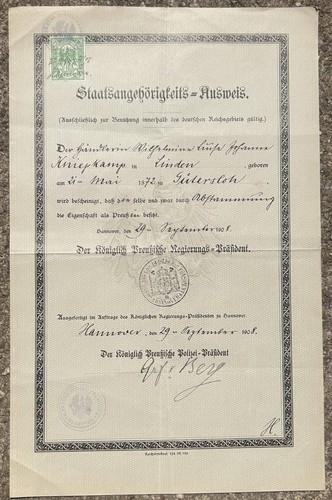 Staatsangehörigkeits=Ausweis.
(Ausschließlich zur Benutzung innerhalb des deutschen Reichsgebiets gültig.)
Der Händlerin Wilhelmine Luise Johanne
in Linden, geboren
am 21. Mai 1872 zu Gütersloh,
wird bescheinigt, daß selbe und zwar durch Abstammung
die Eigenschaft als Preußin besitzt.
Hannover, den 29. September 1908.
Der Königlich Preußische Regierungs=Präsident.
Ausgefertigt im Auftrage des Königlichen Regierungs=Präsidenten zu Hannover.
Hannover, den 29. September 1908.
Der Königlich Preußische Polizei=Präsident
v. Berg
H.